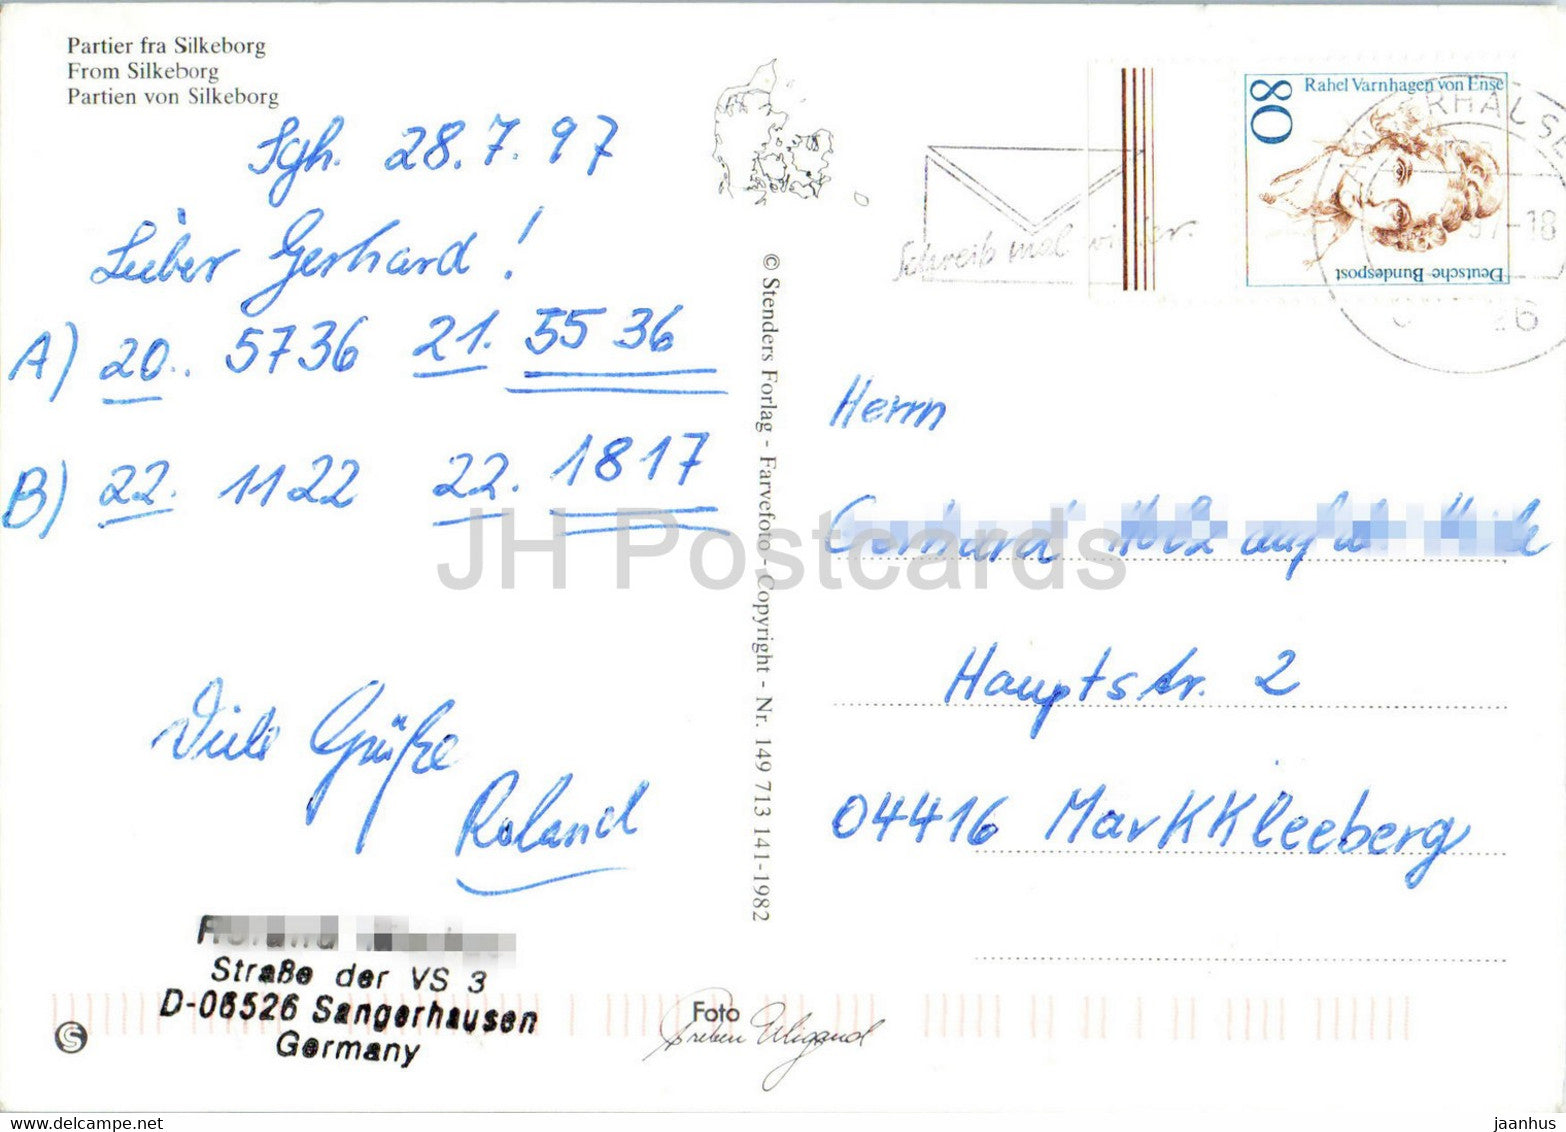 Partier fra Silkeborg
From Silkeborg
Partien von Silkeborg
Sgh. 28.7.97
Lieber Gerhard!
A) 20.. 5736 21. 5536
B) 22. 1122 22. 1817
Viele Grüße
Roland
Straße der VS 3
D-06526 Sangerhausen
Germany
Foto
Preben Wigand
© Stenders Forlag - Farvefoto - Copyright - Nr. 149 713 141-1982
Schreib mal wieder.
80
Rahel Varnhagen von Ense
Deutsche Bundespost
97-18
Herrn
Gerhard
Hauptstr. 2
04416 MarkKleeberg
JH Postcards
www.hipPostcard.com
jaanhus